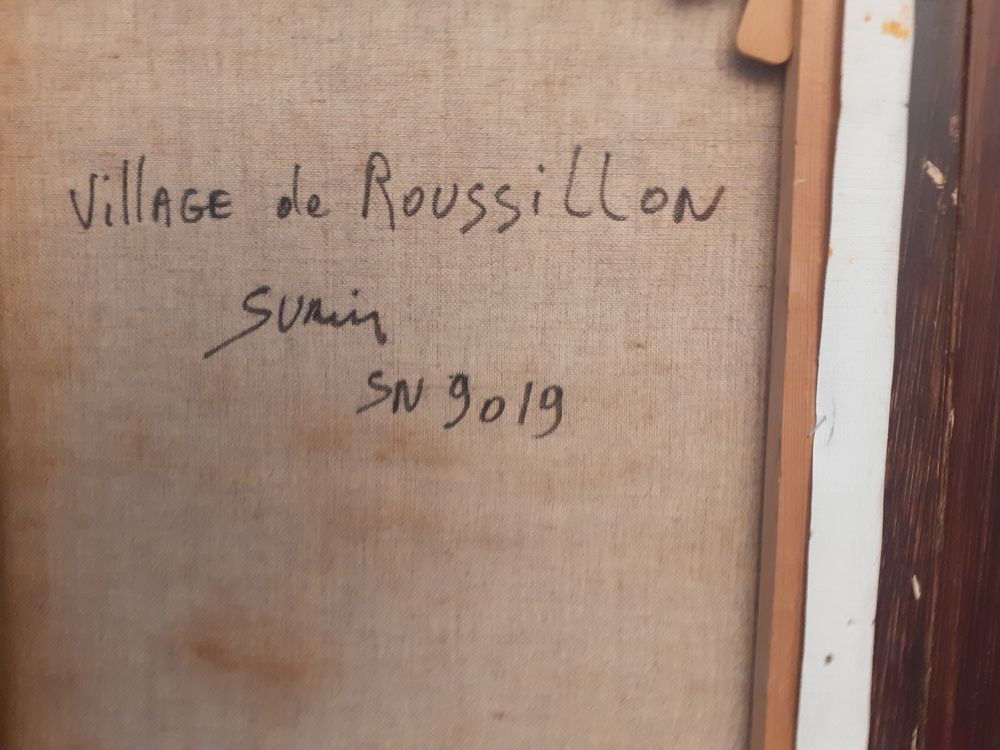 Village de Roussillon
SURIN
SN 9019